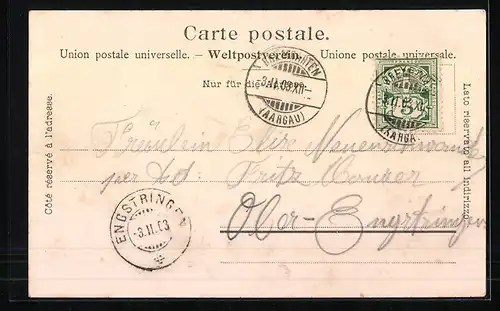 Carte postale.
Union postale universelle. – Weltpostverein. – Unione postale universale.
Nur für die Adresse.
3.II.03.XII
(AARGAU)
5
Côté réservé à l'adresse.
Lato riservato all'indirizzo.
Fräulein Elise
per Ad: Fritz Hauser
Ober-Engstringen
ENGSTRINGEN
-3.II.03